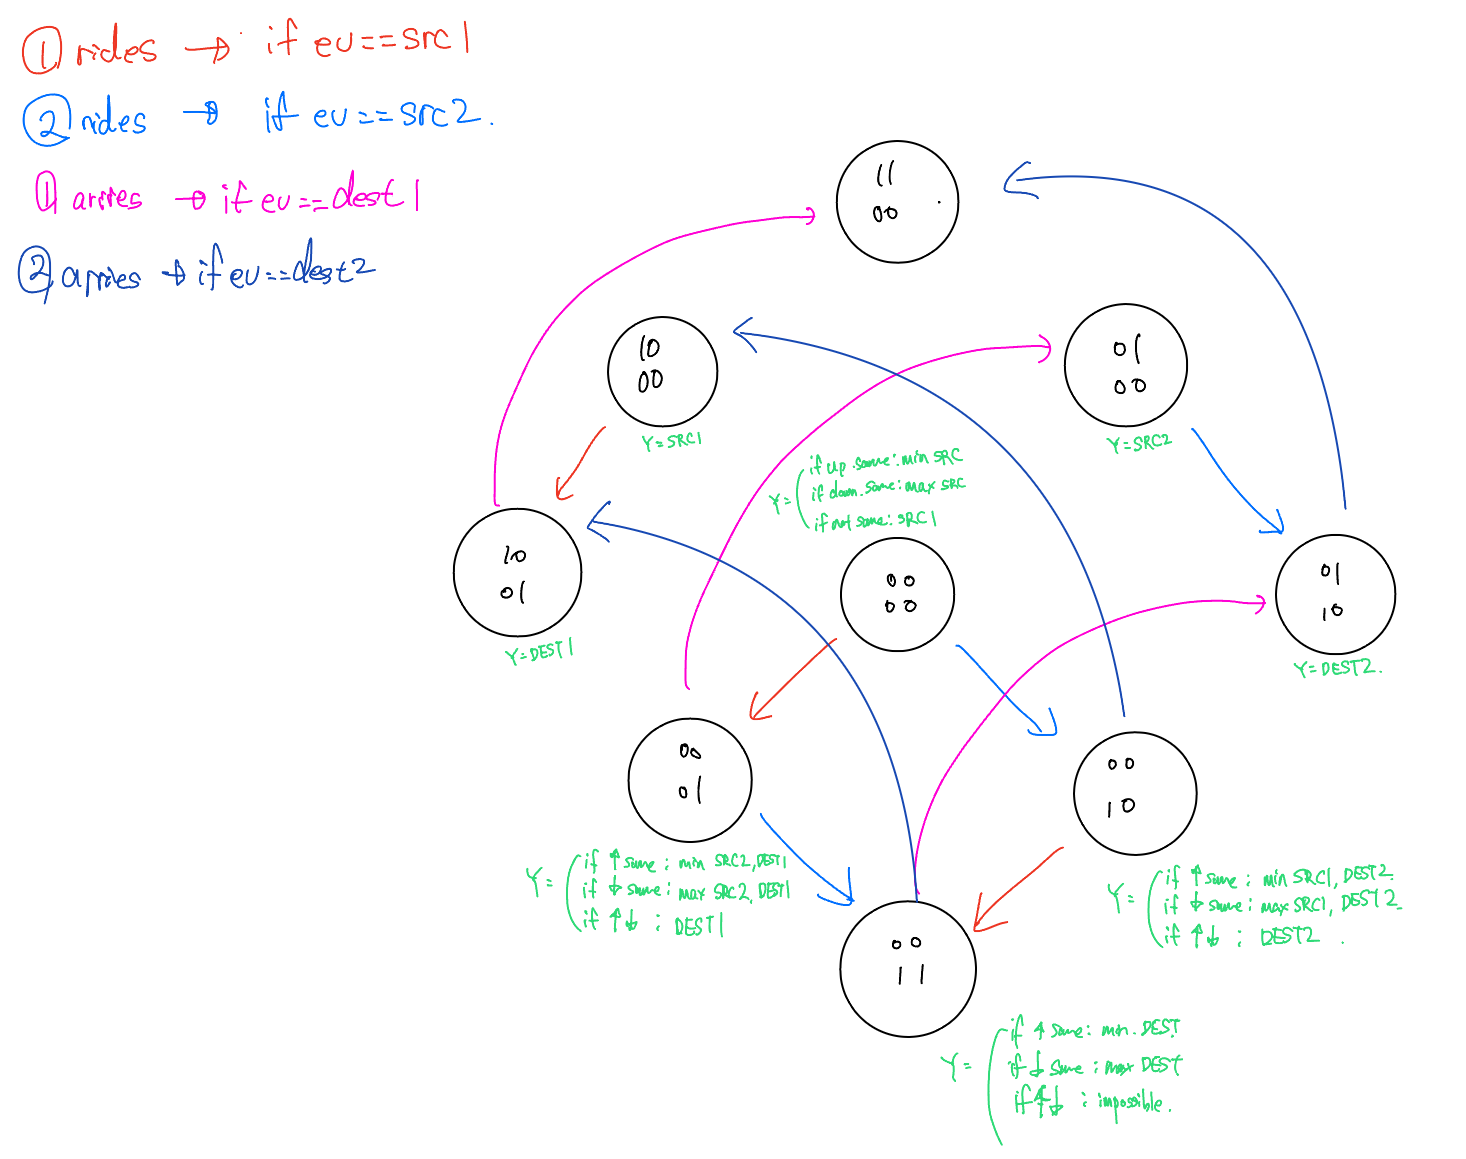 ① rides → if ev==src1
② rides → if ev==src2.
① arries → if ev==dest1
② arries → if ev==dest2
11
00
10
00
Y=SRC1
01
00
Y=SRC2
Y=
if up same: min SRC
if down same: max SRC
if not same: SRC1
10
01
Y=DEST1
00
00
01
10
Y=DEST2.
00
01
Y=
if ↑ same : min SRC2, DEST1
if ↓ same : max SRC2, DEST1
if ↑↓ : DEST1
00
10
Y=
if ↑ same : min SRC1, DEST2
if ↓ same : max SRC1, DEST2
if ↑↓ : DEST2.
00
11
Y=
if ↑ same: min. DEST
if ↓ same : max DEST
if ↑↓ : impossible.